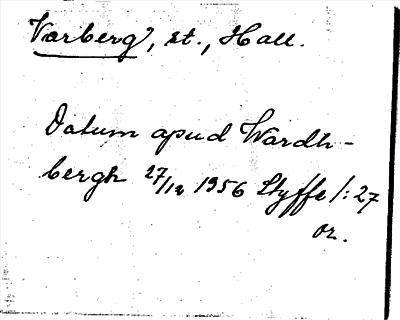 Varberg, st., Hall.
Datum apud Wardh-
bergh 27/12 1356 Styffe 1:27
or.